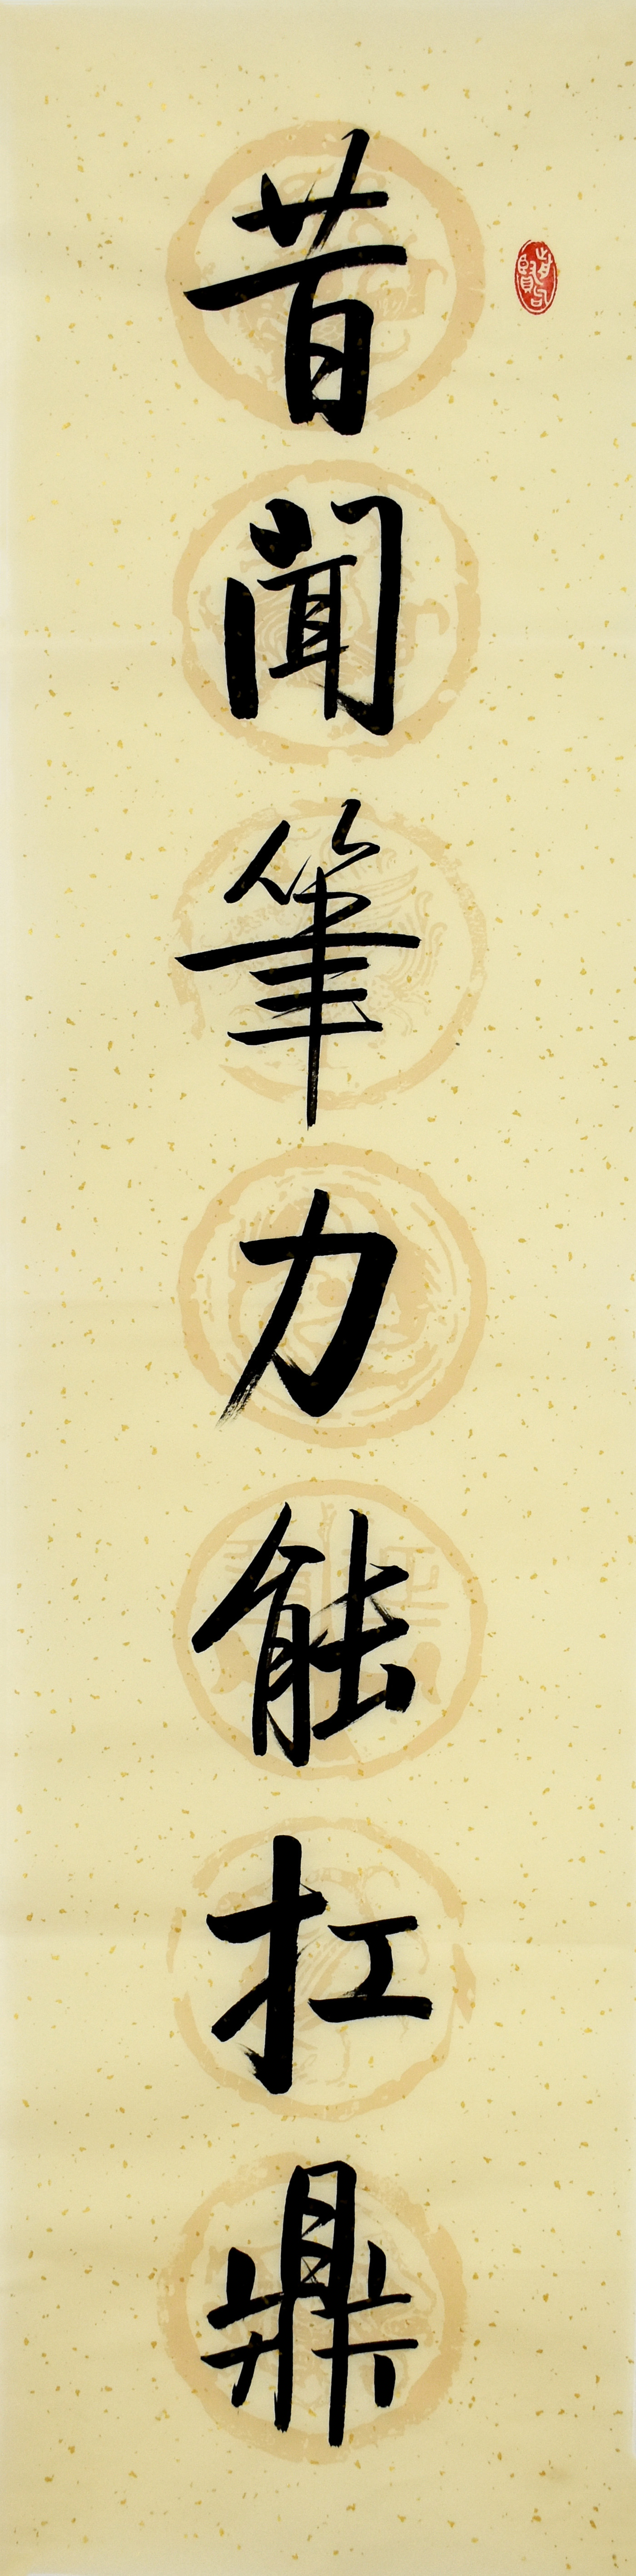 昔闻筆力能扛鼎